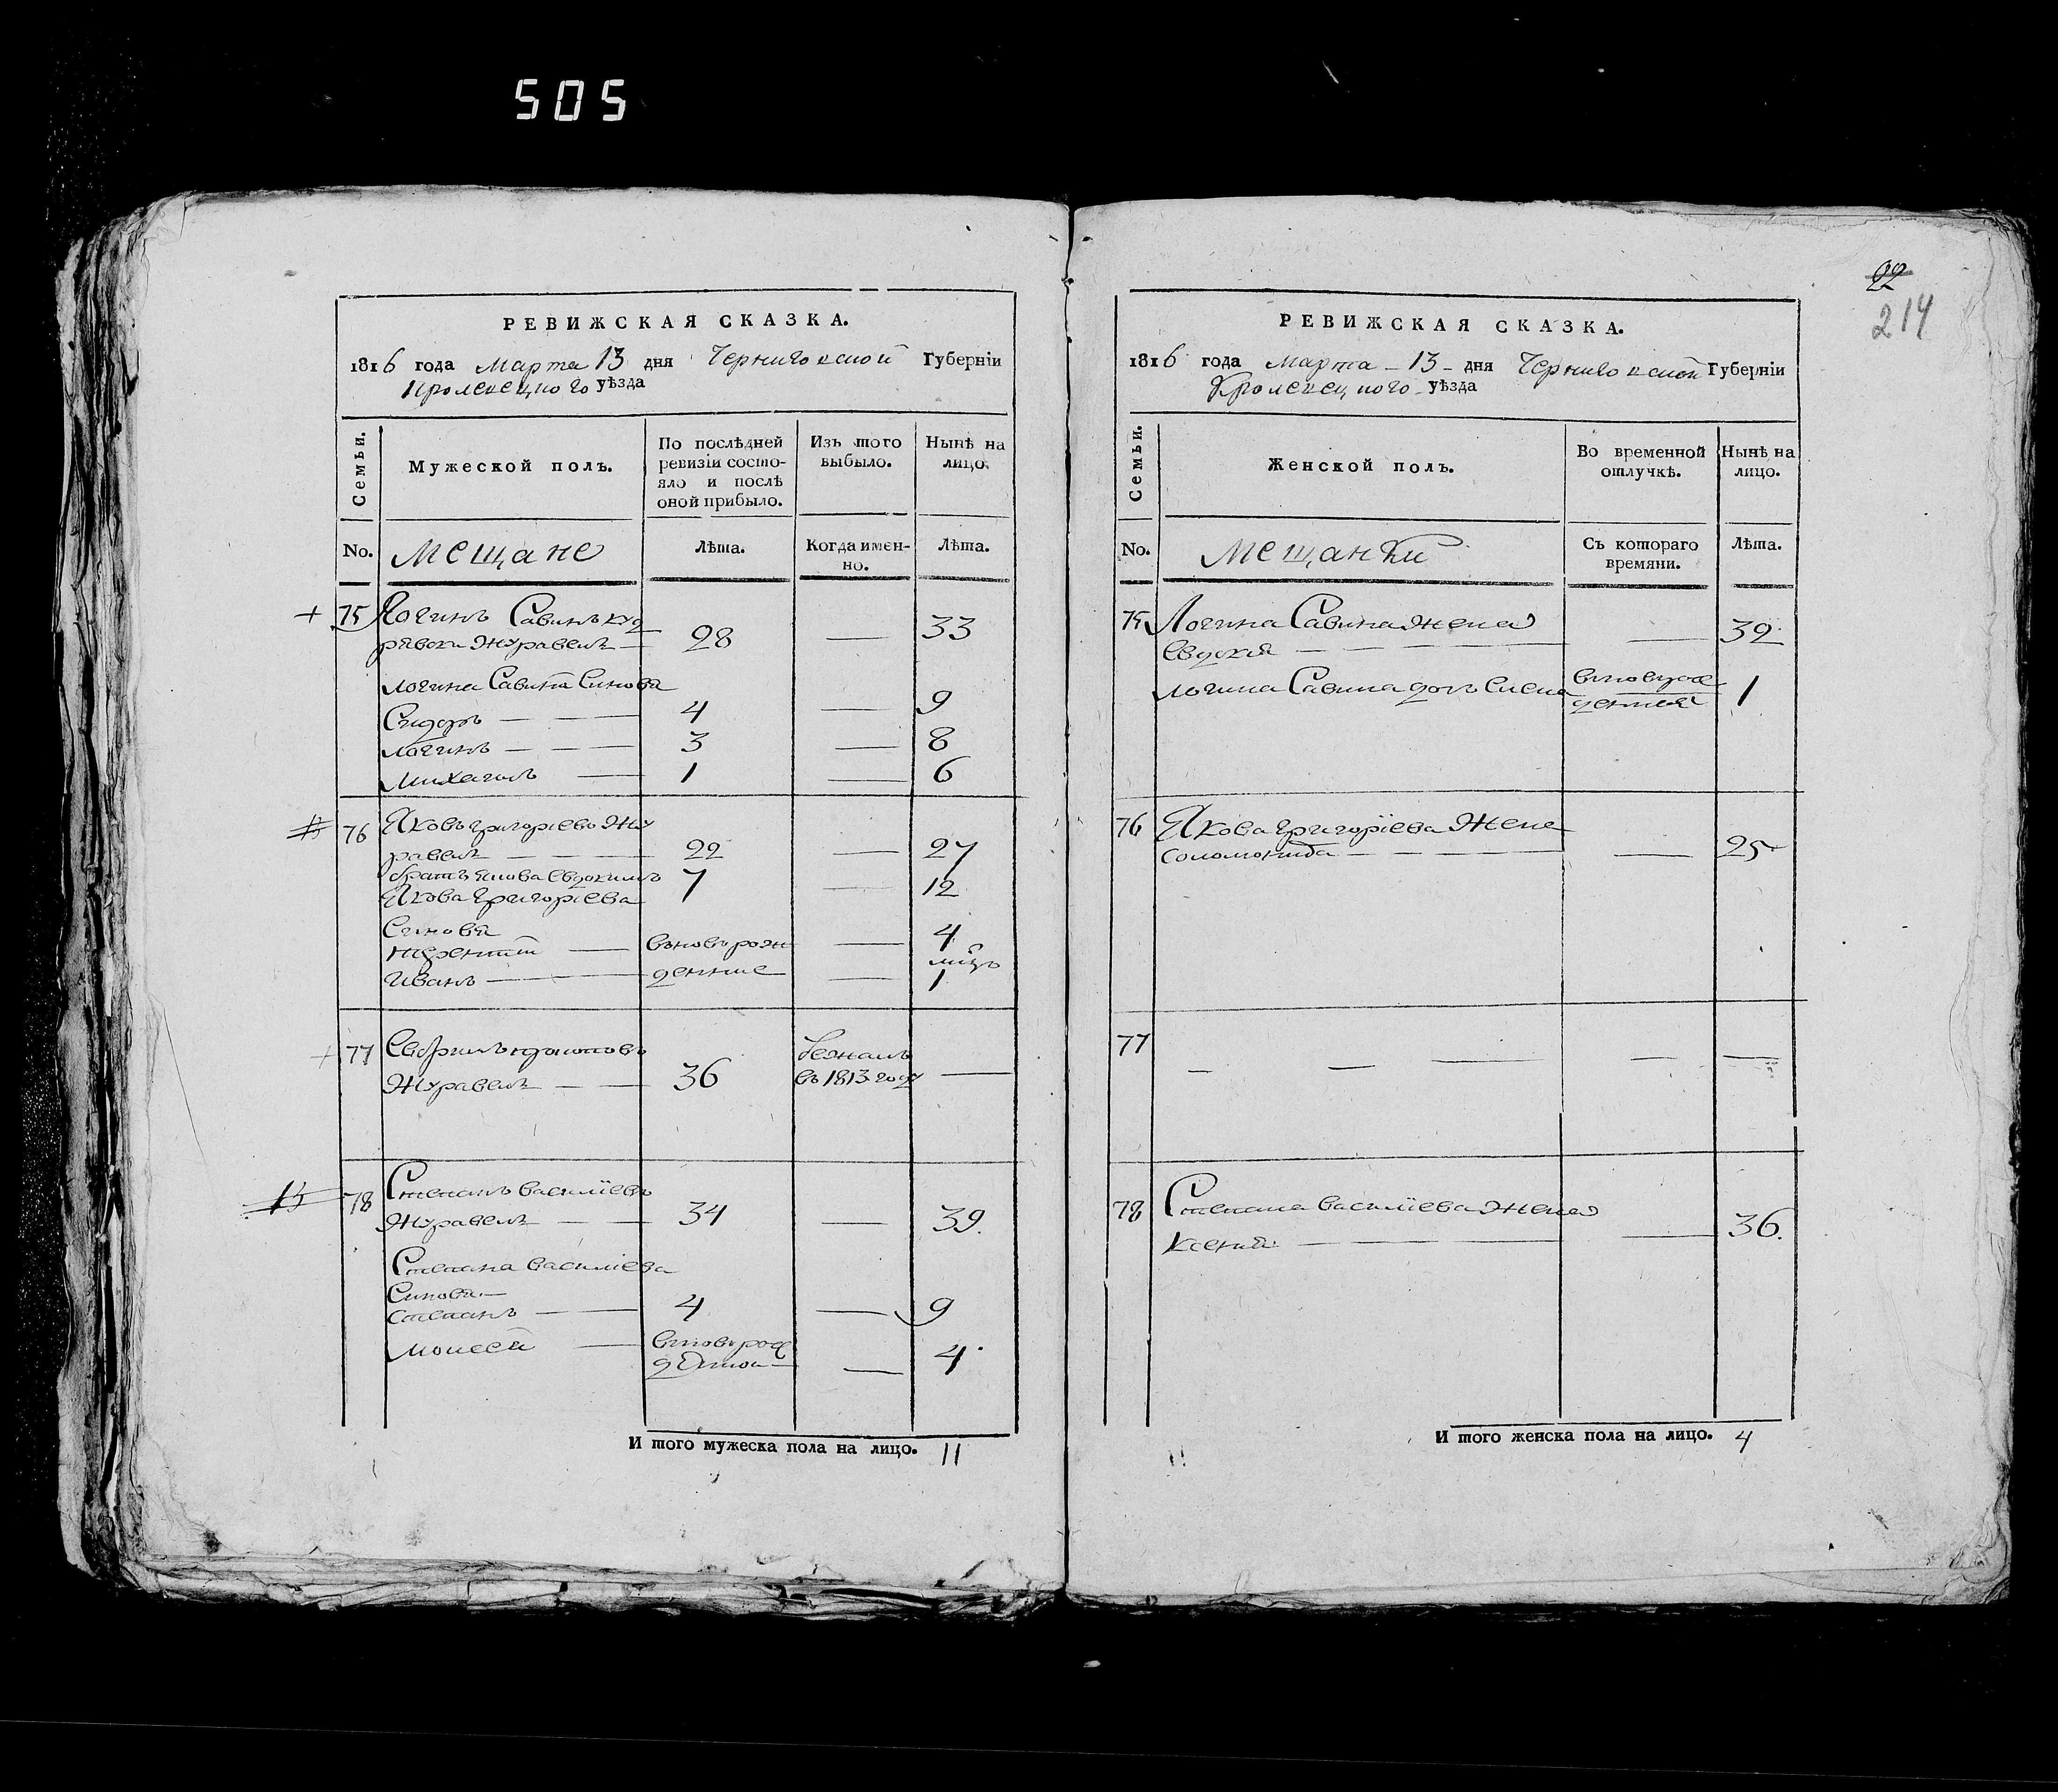 505
РЕВИЖСКАЯ СКАЗКА.
1816 года Марта 13 дня Черниговской Губерніи
Кролевецкого уѣзда
Семьи.
Мужеской полъ.
По послѣдней ревизіи состояло и послѣ оной прибыло.
Изъ того выбыло.
Нынѣ на лицо.
No. Мещане Лѣта. Когда именно. Лѣта.
75 Логинъ Савинъ
Журавель — 28 — 33
Логина Савина Синовя
Сидоръ — — — 4 — 9
Логинъ — — — 3 — 8
Михаилъ — 1 — 6
76 Яковъ Григоріевъ Жу
равель — — — 22 — 27
братъ Якова Евдокимъ 7 — 12
Якова Григоріева
Синовя
Терентій — вновь рож — 4
Иванъ — денние — 1
77 Журавель — — 36 бежалъ въ 1813 году —
78 Степанъ Василіевъ
Журавель — — 34 — 39.
Степана Василіева
Синовя —
Степанъ — — 4 — 9
Моисей — вновь рож — 4
И того мужеска пола на лицо. 11
92
214
РЕВИЖСКАЯ СКАЗКА.
1816 года Марта - 13 - дня Черниговской Губерніи
Кролевецкого уѣзда
Семьи.
Женской полъ.
Во временной отлучкѣ.
Нынѣ на лицо.
No. Мещанки Съ котораго времяни. Лѣта.
75 Логина Савина Жена
Евдокія — — — — — 32
Логина Савина дочь 1
76 Якова Григоріева Жена
Соломонида — — — — — 25
77 — — — — —
78 Степана Василіева Жена
Ксенія — — — — 36.
И того женска пола на лицо. 4